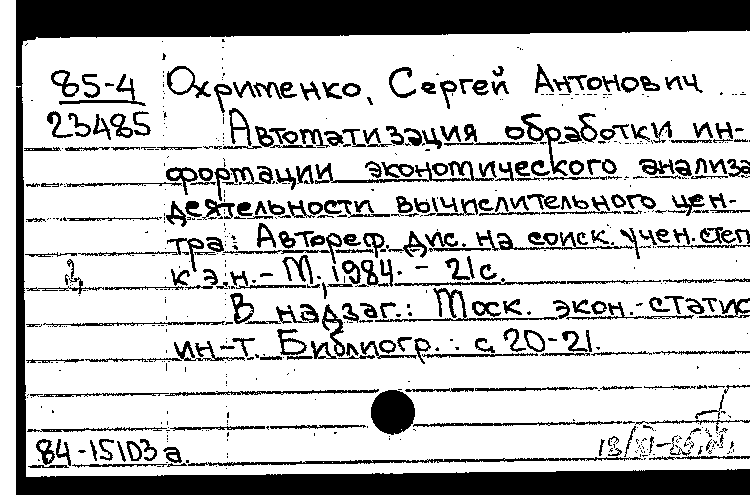 85-4 Охрименко, Сергей Антонович
23485 Автоматизация обработки ин-
формации экономического анализа
деятельности вычислительного цен-
тра: Автореф. дис. на соиск. учен. степ
к.э.н. - М., 1984. - 21 с.
В надзаг.: Моск. экон.-статис
ин-т. Библиогр.: с. 20-21.
84-15103а.